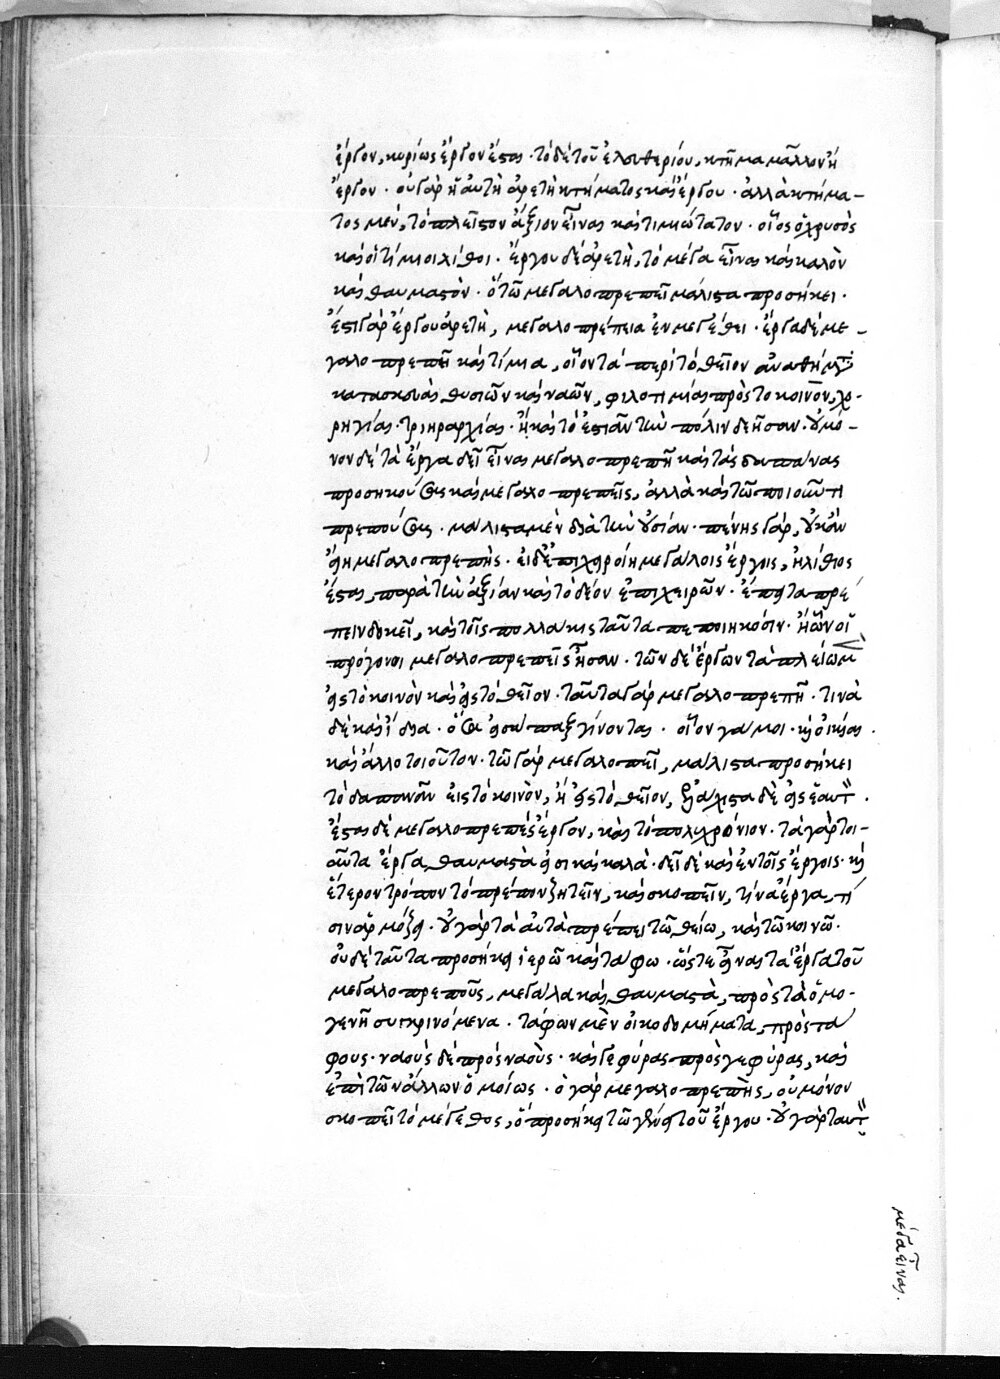 ἔργον, κυρίως ἔργον ἔσται · τὸ δὲ τοῦ ἐλευθερίου, κτῆμα μᾶλλον ἢ
ἔργον · οὐ γὰρ ἡ αὐτὴ ἀρετὴ κτήματος καὶ ἔργου · ἀλλὰ κτήμα-
τος μὲν, τὸ πλεῖστον ἄξιον εἶναι καὶ τιμιώτατον · οἷος ὁ χρυσὸς
καὶ οἱ τίμιοι λίθοι · ἔργου δὲ ἀρετὴ, τὸ μέγα εἶναι καὶ καλὸν
καὶ θαυμαστὸν · ὃ τῷ μεγαλοπρεπεῖ μάλιστα προσήκει ·
ἔστι γὰρ ἔργου ἀρετὴ, μεγαλοπρέπεια ἐν μεγέθει · ἔργα δὲ με-
γαλοπρεπῆ καὶ τίμια, οἷον τὰ περὶ τὸ θεῖον ἀναθήματα
κατασκευὰς θυσιῶν καὶ ναῶν, φιλοτιμίας πρὸς τὸ κοινὸν, χο-
ρηγίας · τριηραρχίας · ἢ καὶ τὸ ἑστιᾶν τὴν πόλιν δεῆσαν · οὐ μό-
νον δὲ τὰ ἔργα δεῖ εἶναι μεγαλοπρεπῆ καὶ τὰς δαπάνας
προσηκούσας καὶ μεγαλοπρεπεῖς, ἀλλὰ καὶ τῷ ποιοῦντι
πρεπούσας · μάλιστα μὲν διὰ τὴν οὐσίαν · πένης γὰρ, οὐκ ἂν
εἴη μεγαλοπρεπὴς · εἰ δ' ἐπιχειροίη μεγάλοις ἔργοις, ἠλίθιος
ἔσται, παρὰ τὴν ἀξίαν καὶ τὸ δέον ἐπιχειρῶν · ἔπειτα πρέ
πειν δοκεῖ, καὶ τοῖς πολλάκις ταῦτα πεποιηκόσιν · ἢ ὧν οἱ
πρόγονοι μεγαλοπρεπεῖς ἦσαν · τῶν δὲ ἔργων τὰ πλείω μὲν
εἰς τὸ κοινὸν καὶ εἰς τὸ θεῖον · ταῦτα γὰρ μεγαλοπρεπῆ · τινὰ
δὲ καὶ ἴδια · ὅσα εἰσάπαξ γίνονται · οἷον γάμοι · καὶ οἰκίαι ·
καὶ ἄλλο τοιοῦτον · τῷ γὰρ μεγαλοπεῖ, μάλιστα προσήκει
τὸ δαπανᾶν εἰς τὸ κοινὸν, ἢ εἰς τὸ θεῖον, ἐλάχιστα δὲ εἰς ἑαυτὸν ·
ἔσται δὲ μεγαλοπρεπὲς ἔργον, καὶ τὸ πολυχρόνιον · τὰ γὰρ τοι-
αῦτα ἔργα, θαυμαστὰ εἰσι καὶ καλὰ · δεῖ δὲ καὶ ἐν τοῖς ἔργοις · καὶ
ἕτερον τρόπον τὸ πρέπον ζητεῖν, καὶ σκοπεῖν, τίνα ἔργα, τί
σιν ἁρμόζει · οὐ γὰρ τὰ αὐτὰ πρέπει τῷ θείῳ, καὶ τῷ κοινῷ ·
οὐδὲ ταῦτα προσήκει ἱερῷ καὶ τάφῳ · ὥστε εἶναι τὰ ἔργα τοῦ
μεγαλοπρεποῦς, μεγάλα καὶ θαυμαστὰ, πρὸς τὰ ὁμο-
γενῆ συγκρινόμενα · τάφων μὲν οἰκοδομήματα, πρὸς τά
φους · ναοὺς δὲ πρὸς ναοὺς · καὶ γεφύρας πρὸς γεφύρας, καὶ
ἐπὶ τῶν ἄλλων ὁμοίως · ὁ γὰρ μεγαλοπρεπὴς, οὐ μόνον
σκοπεῖ τὸ μέγεθος, ὃ προσήκει τῷ γένει τοῦ ἔργου · οὐ γὰρ ταυτὸν
μέγα εἶναι.